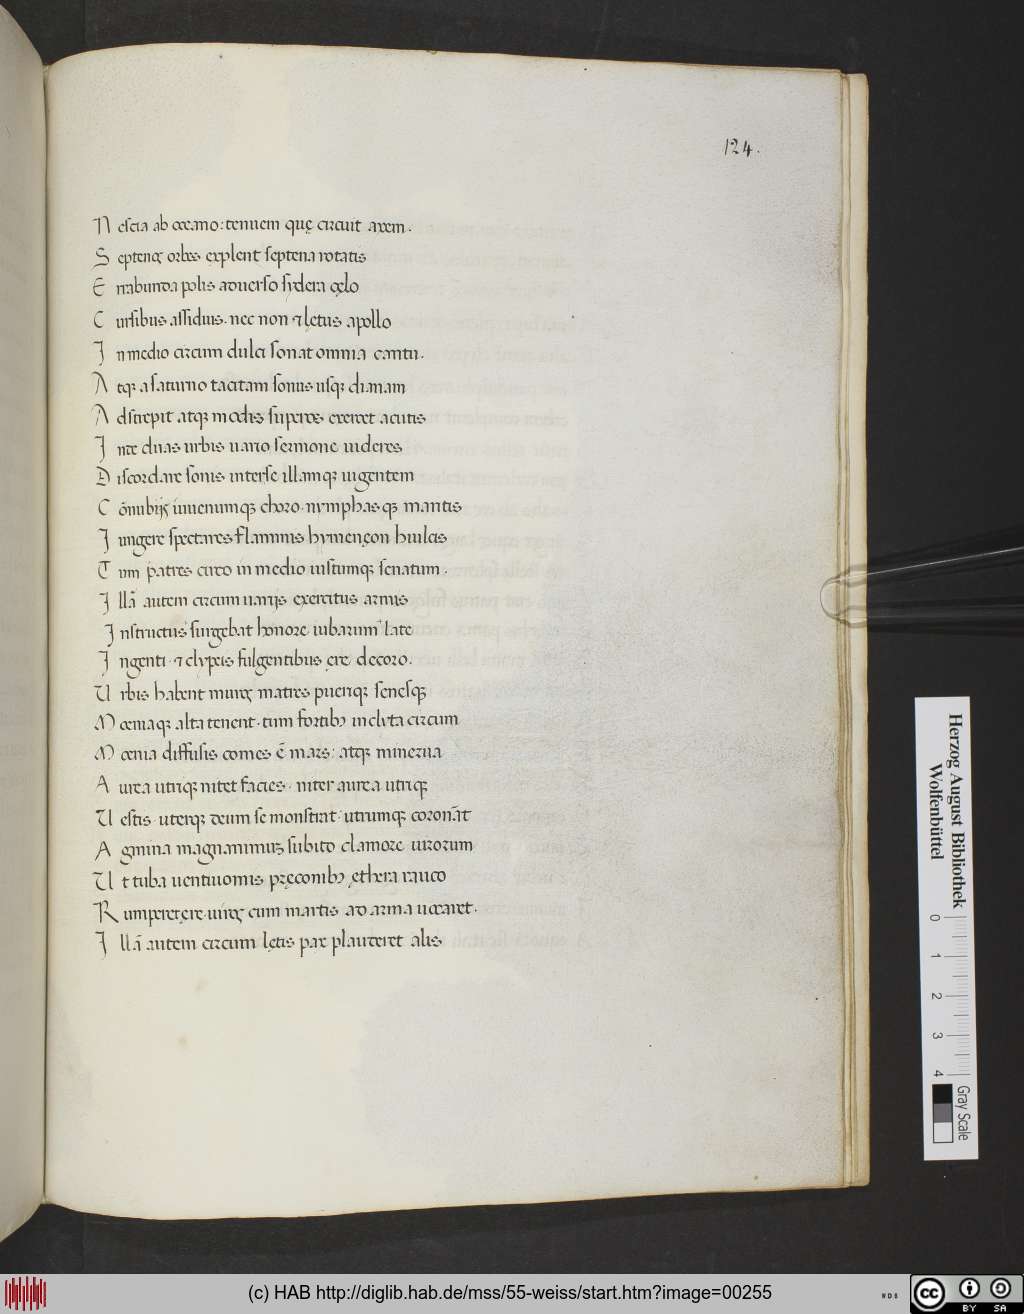 124.
N escia ab oceano: tenuem quę circuit axem.
S eptenos orbes explent septena rotatis
E rrabunda polis aduerso sydera cęlo
C ursibus assiduis. nec non & lętus apollo
I n medio circum dulci sonat omnia cantu.
A tq; a saturno tacitam sonus usq; dianam
A dstrepit atq; modis superos exercet acutis
I nte duas urbis uario sermone uideres
D iscordare sonis inter se illamq; uigentem
C ōnubijs iuuenumq; choro. nymphasq; mantis
I ungere spectares flaminis hymenęon hiulcis
T um patres circo in medio iustumq; senatum.
I llā autem circum uarijs exercitus armis
I nstructus surgebat honore iubarum late
I ngenti. & clypeis fulgentibus ęre decoro.
U rbis habent muros matres pueriq; senesq;
M oeniaq; alta tenent. tum fortib; inclyta circum
M oenia diffusis comes ē mars: atq; minerua
A urea utriq; nitet facies. niter aurea utriq;
U estis. uterq; deum se monstrat. utrumq; coronāt
A gmina magnanimum subito clamore uirorum
U t tuba uentiuomis pręconib; ęthera rauco
R umperet ęre. uiros cum martis ad arma uocaret.
I llā autem circum lętis pax plauderet alis
Herzog August Bibliothek
Wolfenbüttel
0 1 2 3 4
Gray Scale
(c) HAB http://diglib.hab.de/mss/55-weiss/start.htm?image=00255
WDB
cc BY SA